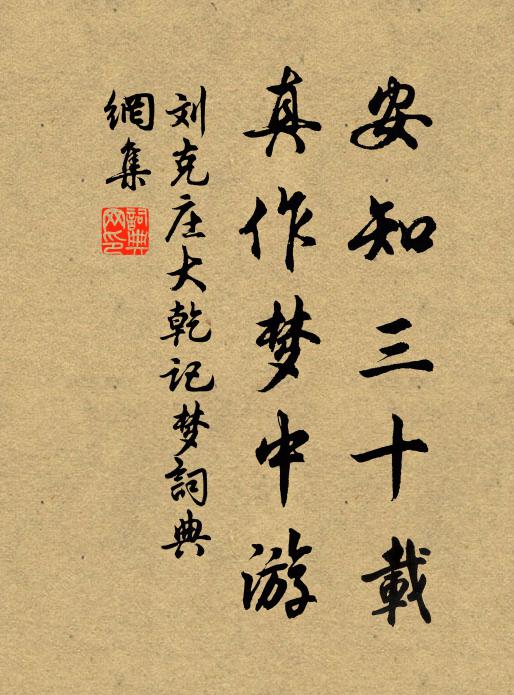 安知三十載
真作梦中游
刘克庄大乾记梦詞典
網集
詞典
网印